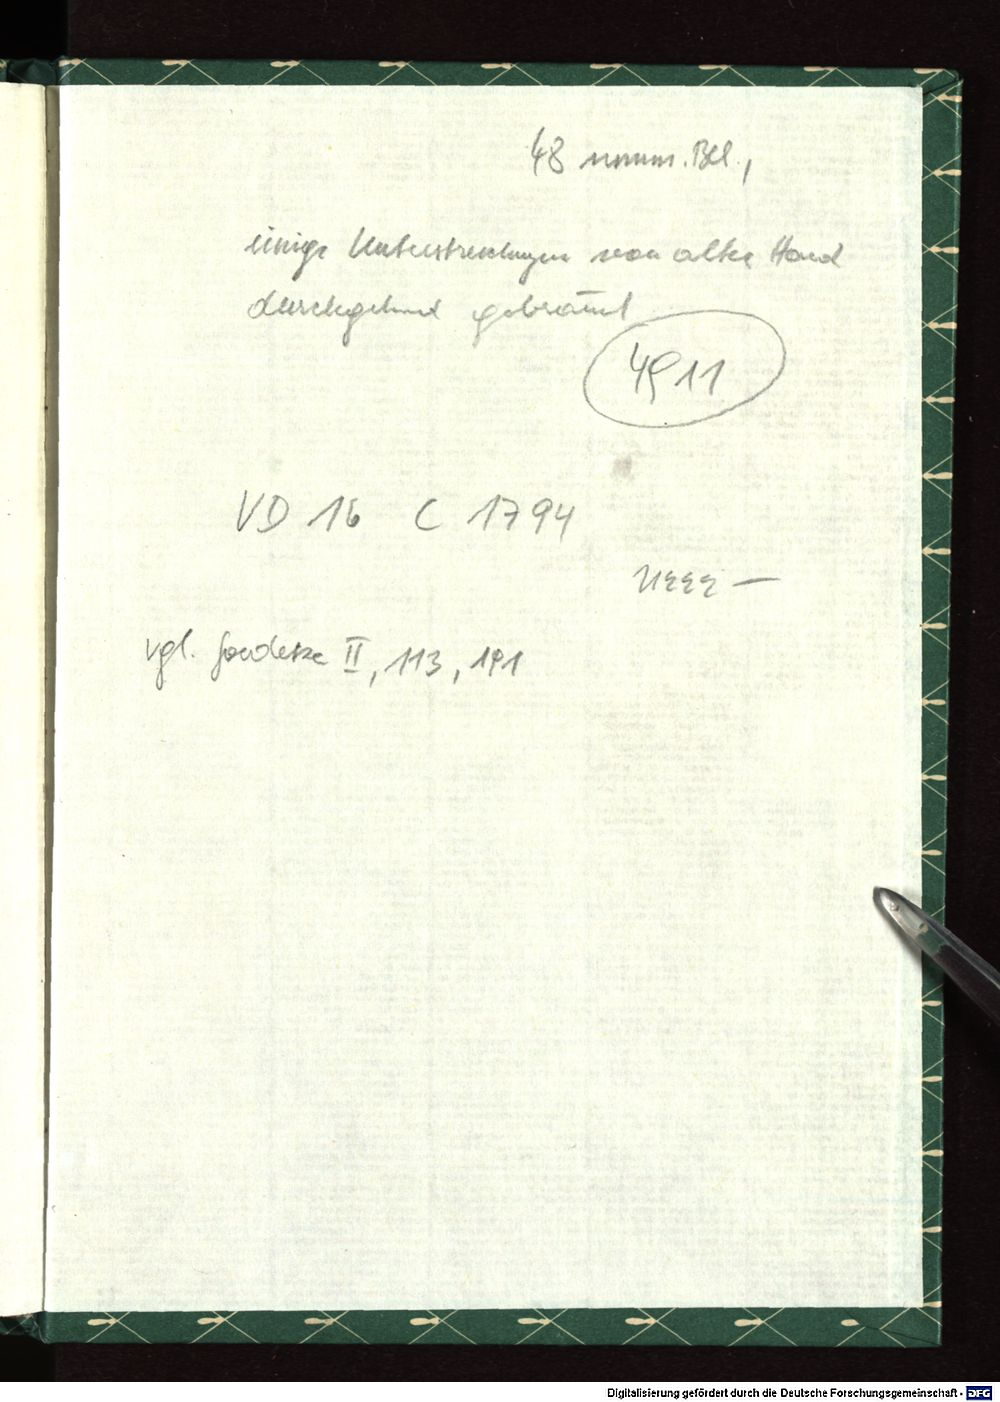 48 numm. Bll.,
einige Unterstreichungen von alter Hand
durchgehend gebräunt
4911
VD 16 C 1794
vgl. Goedeke II, 113, 191
Digitalisierung gefördert durch die Deutsche Forschungsgemeinschaft - DFG